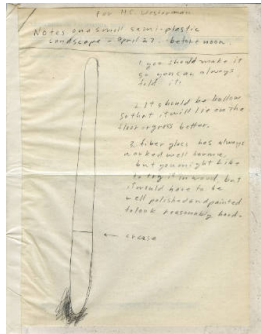 For H.C. Westermann
Notes on a small semi-plastic
Landscape - April 27 - before noon
1. you should make it
so you can always
fold it.
2. It should be hollow
so that it will lie on the
floor or grass better.
3. fiber glass has always
worked well for me,
but you might like
to try it in wood, but
it would have to be
well polished and painted
to look reasonably hard.
← crease